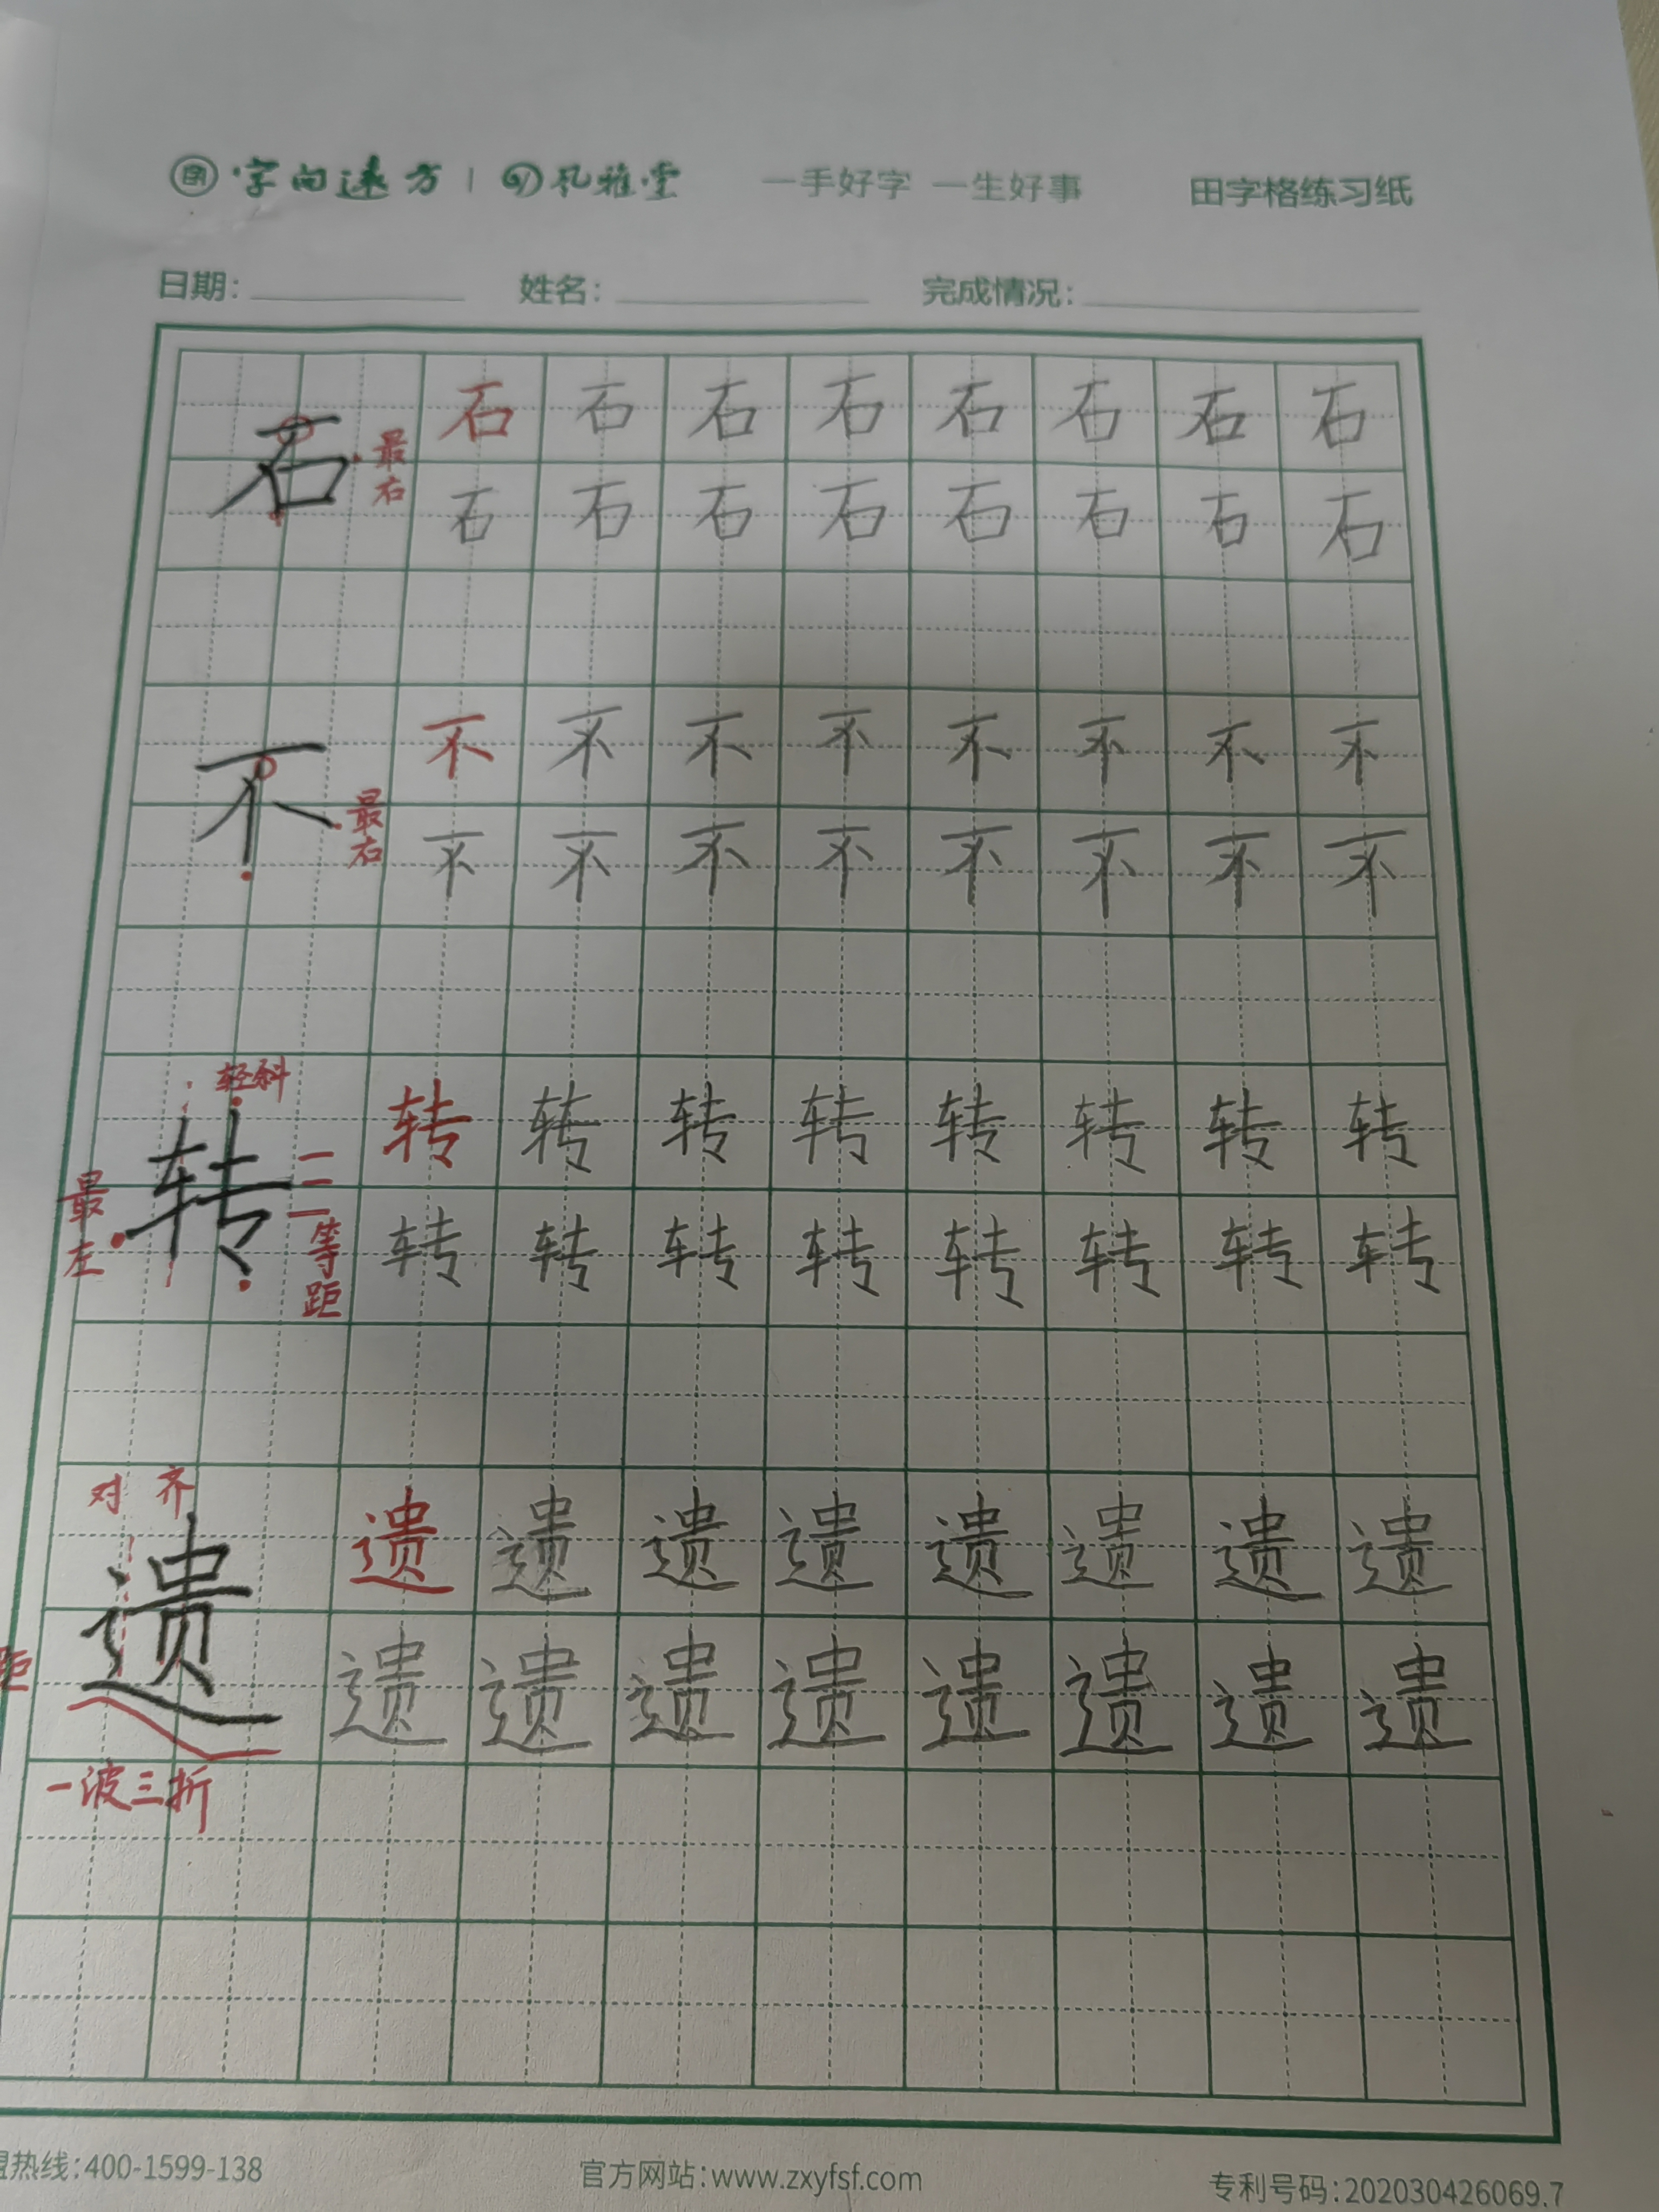 字向远方 | 风雅堂 一手好字 一生好事 田字格练习纸
日期： 姓名： 完成情况：
石 最右 石 石 石 石 石 石 石 石
石 石 石 石 石 石 石 石
不 最右 不 不 不 不 不 不 不 不
不 不 不 不 不 不 不 不
轻斜
转 最左 等距 转 转 转 转 转 转 转 转
转 转 转 转 转 转 转 转
对齐
遗 距 遗 遗 遗 遗 遗 遗 遗 遗
遗 遗 遗 遗 遗 遗 遗 遗
一波三折
盟热线:400-1599-138 官方网站:www.zxyfsf.com 专利号码:202030426069.7